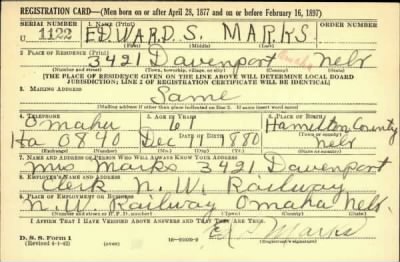 REGISTRATION CARD—(Men born on or after April 28, 1877 and on or before February 16, 1897)
SERIAL NUMBER 1. NAME (Print) ORDER NUMBER
U 1122 EDWARD S. MARKS
(First) (Middle) (Last)
2. PLACE OF RESIDENCE (Print)
3421 Davenport Omaha Nebr
(Number and street) (Town, township, village, or city) (County) (State)
[THE PLACE OF RESIDENCE GIVEN ON THE LINE ABOVE WILL DETERMINE LOCAL BOARD
JURISDICTION; LINE 2 OF REGISTRATION CERTIFICATE WILL BE IDENTICAL]
3. MAILING ADDRESS
Same
[Mailing address if other than place indicated on line 2. If same insert word same]
4. TELEPHONE 5. AGE IN YEARS 6. PLACE OF BIRTH
Omaha 61 Hamilton County
DATE OF BIRTH
Ha 0840 Dec 9 1880 Nebr
7. NAME AND ADDRESS OF PERSON WHO WILL ALWAYS KNOW YOUR ADDRESS
Mrs Marks 3421 Davenport
8. EMPLOYER'S NAME AND ADDRESS
Clerk N. W. Railway
9. PLACE OF EMPLOYMENT OR BUSINESS
N. W. Railway Omaha Nebr.
(Number and street or R. F. D. number) (Town) (County) (State)
I AFFIRM THAT I HAVE VERIFIED ABOVE ANSWERS AND THAT THEY ARE TRUE.
D. S. S. Form 1
(Revised 4-1-42) (over)
Ed S Marks
(Registrant's signature)